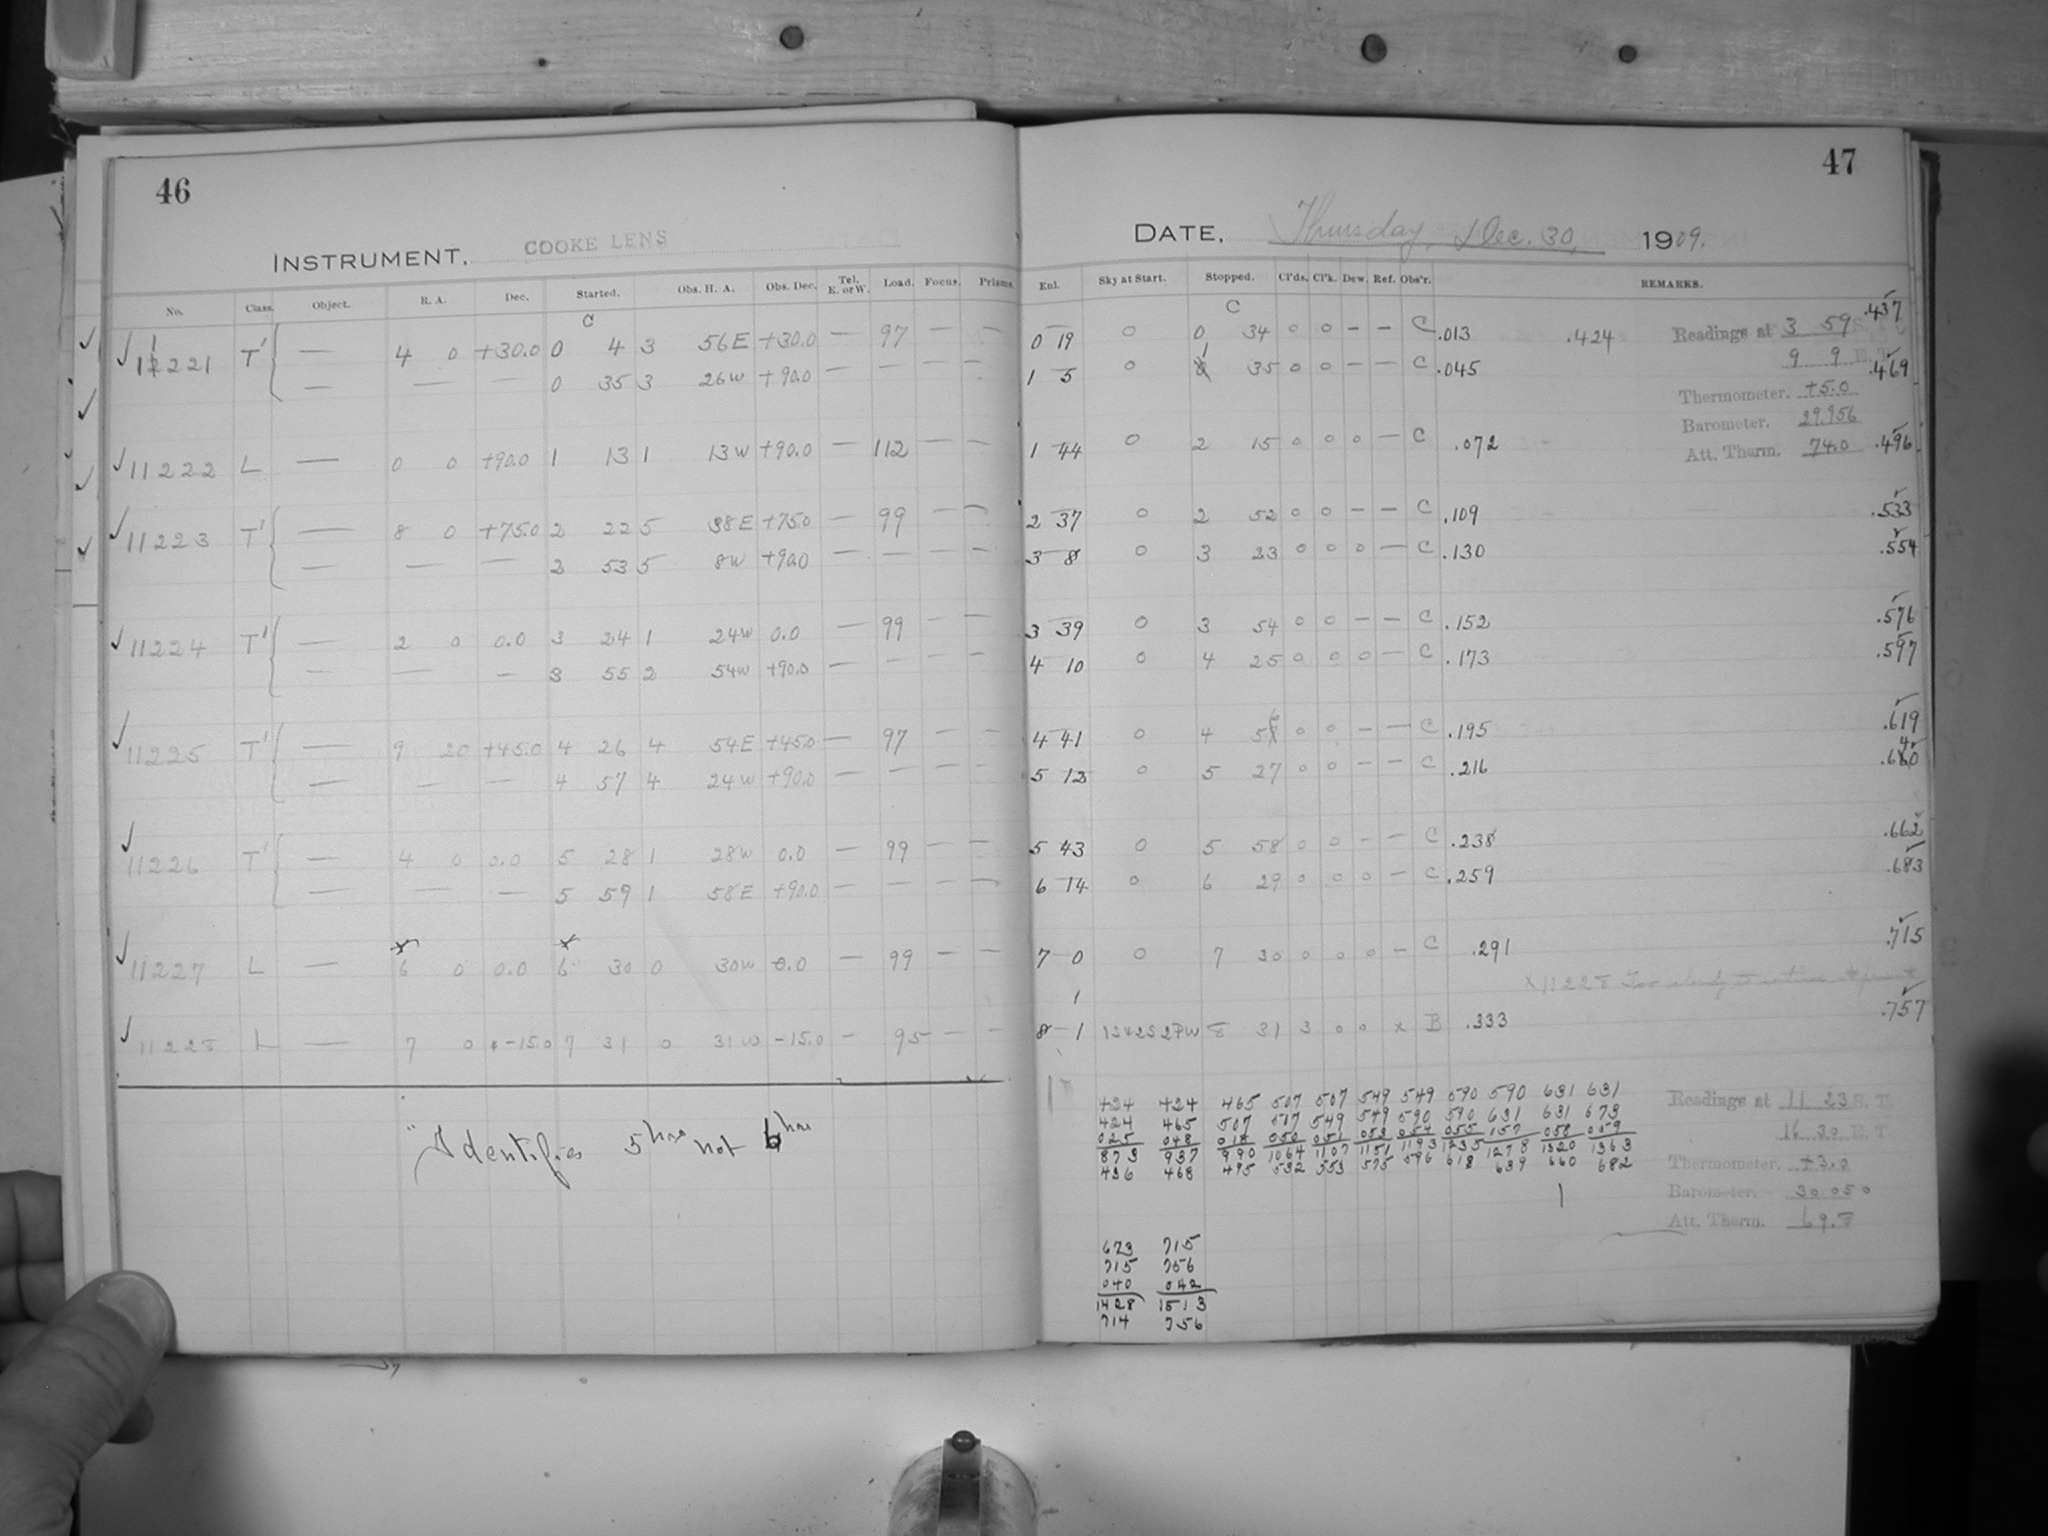 46
INSTRUMENT. COOKE LENS
No. Class. Object. R. A. Dec. Started. Obs. H. A. Obs. Dec. Tel. E. or W. Load. Focus. Prisms.
C
11221 T' — 4 0 +30.0 0 4 3 56E +30.0 — 97 — —
— — — 0 35 3 26W +90.0 — — — —
11222 L — 0 0 +90.0 1 13 1 13W +90.0 — 112 — —
11223 T' — 8 0 +75.0 2 22 5 38E +75.0 — 99 — —
— — — 2 53 5 8W +90.0 — — — —
11224 T' — 2 0 0.0 3 24 1 24W 0.0 — 99 — —
— — — 3 55 2 54W +90.0 — — — —
11225 T' — 9 20 +45.0 4 26 4 54E +45.0 — 97 — —
— — — 4 57 4 24W +90.0 — — — —
11226 T' — 4 0 0.0 5 28 1 28W 0.0 — 99 — —
— — — 5 59 1 58E +90.0 — — — —
11227 L — 6 0 0.0 6 30 0 30W 0.0 — 99 — —
11228 L — 7 0 -15.0 7 31 0 31W -15.0 — 95 — —
Identifies 5hrs not 6hrs
47
DATE, Thursday, Dec. 30, 1909.
Enl. Sky at Start. Stopped. Cl'ds. Cl'k. Dew. Ref. Obs'r. REMARKS.
C
0 19 0 0 34 0 0 — — C .013 .424 Readings at 3 59 S. T. .437
1 5 0 1 35 0 0 — — C .045 9 9 E. T. .469
Thermometer. +5.0
Barometer. 29.956
1 44 0 2 15 0 0 0 — C .072 Att. Therm. 74.0 .496
2 37 0 2 52 0 0 — — C .109 .533
3 8 0 3 23 0 0 0 — C .130 .554
3 39 0 3 54 0 0 — — C .152 .576
4 10 0 4 25 0 0 0 — C .173 .597
4 41 0 4 56 0 0 — — C .195 .619
5 12 0 5 27 0 0 — — C .216 .640
5 43 0 5 58 0 0 — — C .238 .662
6 14 0 6 29 0 0 0 — C .259 .683
7 0 0 7 30 0 0 0 — C .291 .715
x 11228 Too cloudy to
1
8 1 8 31 3 0 0 x B .333 .757
424 424 465 507 507 549 549 590 590 631 631
424 465 507 507 549 549 590 590 631 631 673
025 048 018 050 051 053 054 055 057 058 059
873 937 990 1064 1107 1151 1193 1235 1278 1320 1363
436 468 495 532 553 575 596 618 639 660 682
Readings at 11 23 S. T.
16 30 E. T.
Thermometer. +3.0
Barometer. 30.050
Att. Therm. 69.8
673 715
715 756
040 042
1428 1513
714 756